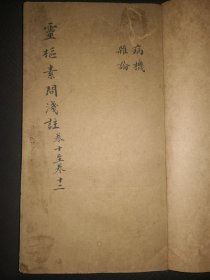 病機
雜論
靈樞素問淺註卷十至卷十二